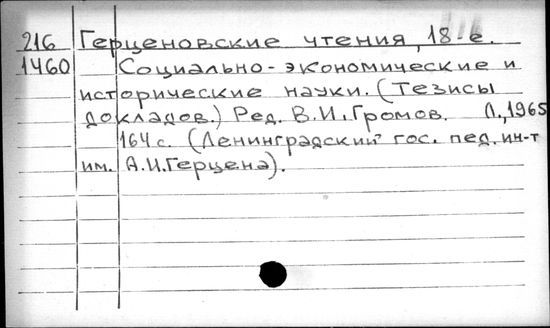 216 Герценовские чтения, 18-е.
1460 Социально-экономические и
исторические науки. (Тезисы
докладов.) Ред. В.И.Громов. Л., 1965
164 с. (Ленинградский гос. пед. ин-т
им. А.И.Герцена).